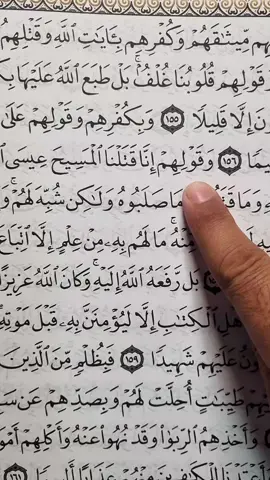 مِّيثَٰقَهُمْ وَكُفْرِهِم بِـَٔايَٰتِ ٱللَّهِ وَقَتْلِهِمُ
قَوْلِهِمْ قُلُوبُنَا غُلْفٌۢ ۚ بَلْ طَبَعَ ٱللَّهُ عَلَيْهَا
إِلَّا قَلِيلًا ١٥٥ وَبِكُفْرِهِمْ وَقَوْلِهِمْ عَلَىٰ
١٥٦ وَقَوْلِهِمْ إِنَّا قَتَلْنَا ٱلْمَسِيحَ عِيسَى
وَمَا مَا صَلَبُوهُ وَلَٰكِن شُبِّهَ لَهُمْ ۚ
مَا لَهُم بِهِۦ مِنْ عِلْمٍ إِلَّا
بَل رَّفَعَهُ ٱللَّهُ إِلَيْهِ ۚ وَكَانَ ٱللَّهُ عَزِيزًا
ٱلْكِتَٰبِ إِلَّا لَيُؤْمِنَنَّ بِهِۦ قَبْلَ مَوْتِهِ
عَلَيْهِمْ شَهِيدًا ١٥٩ فَبِظُلْمٍ مِّنَ ٱلَّذِينَ
طَيِّبَٰتٍ أُحِلَّتْ لَهُمْ وَبِصَدِّهِمْ عَن
وَأَخْذِهِمُ ٱلرِّبَوٰا۟ وَقَدْ نُهُوا۟ عَنْهُ وَأَكْلِهِمْ